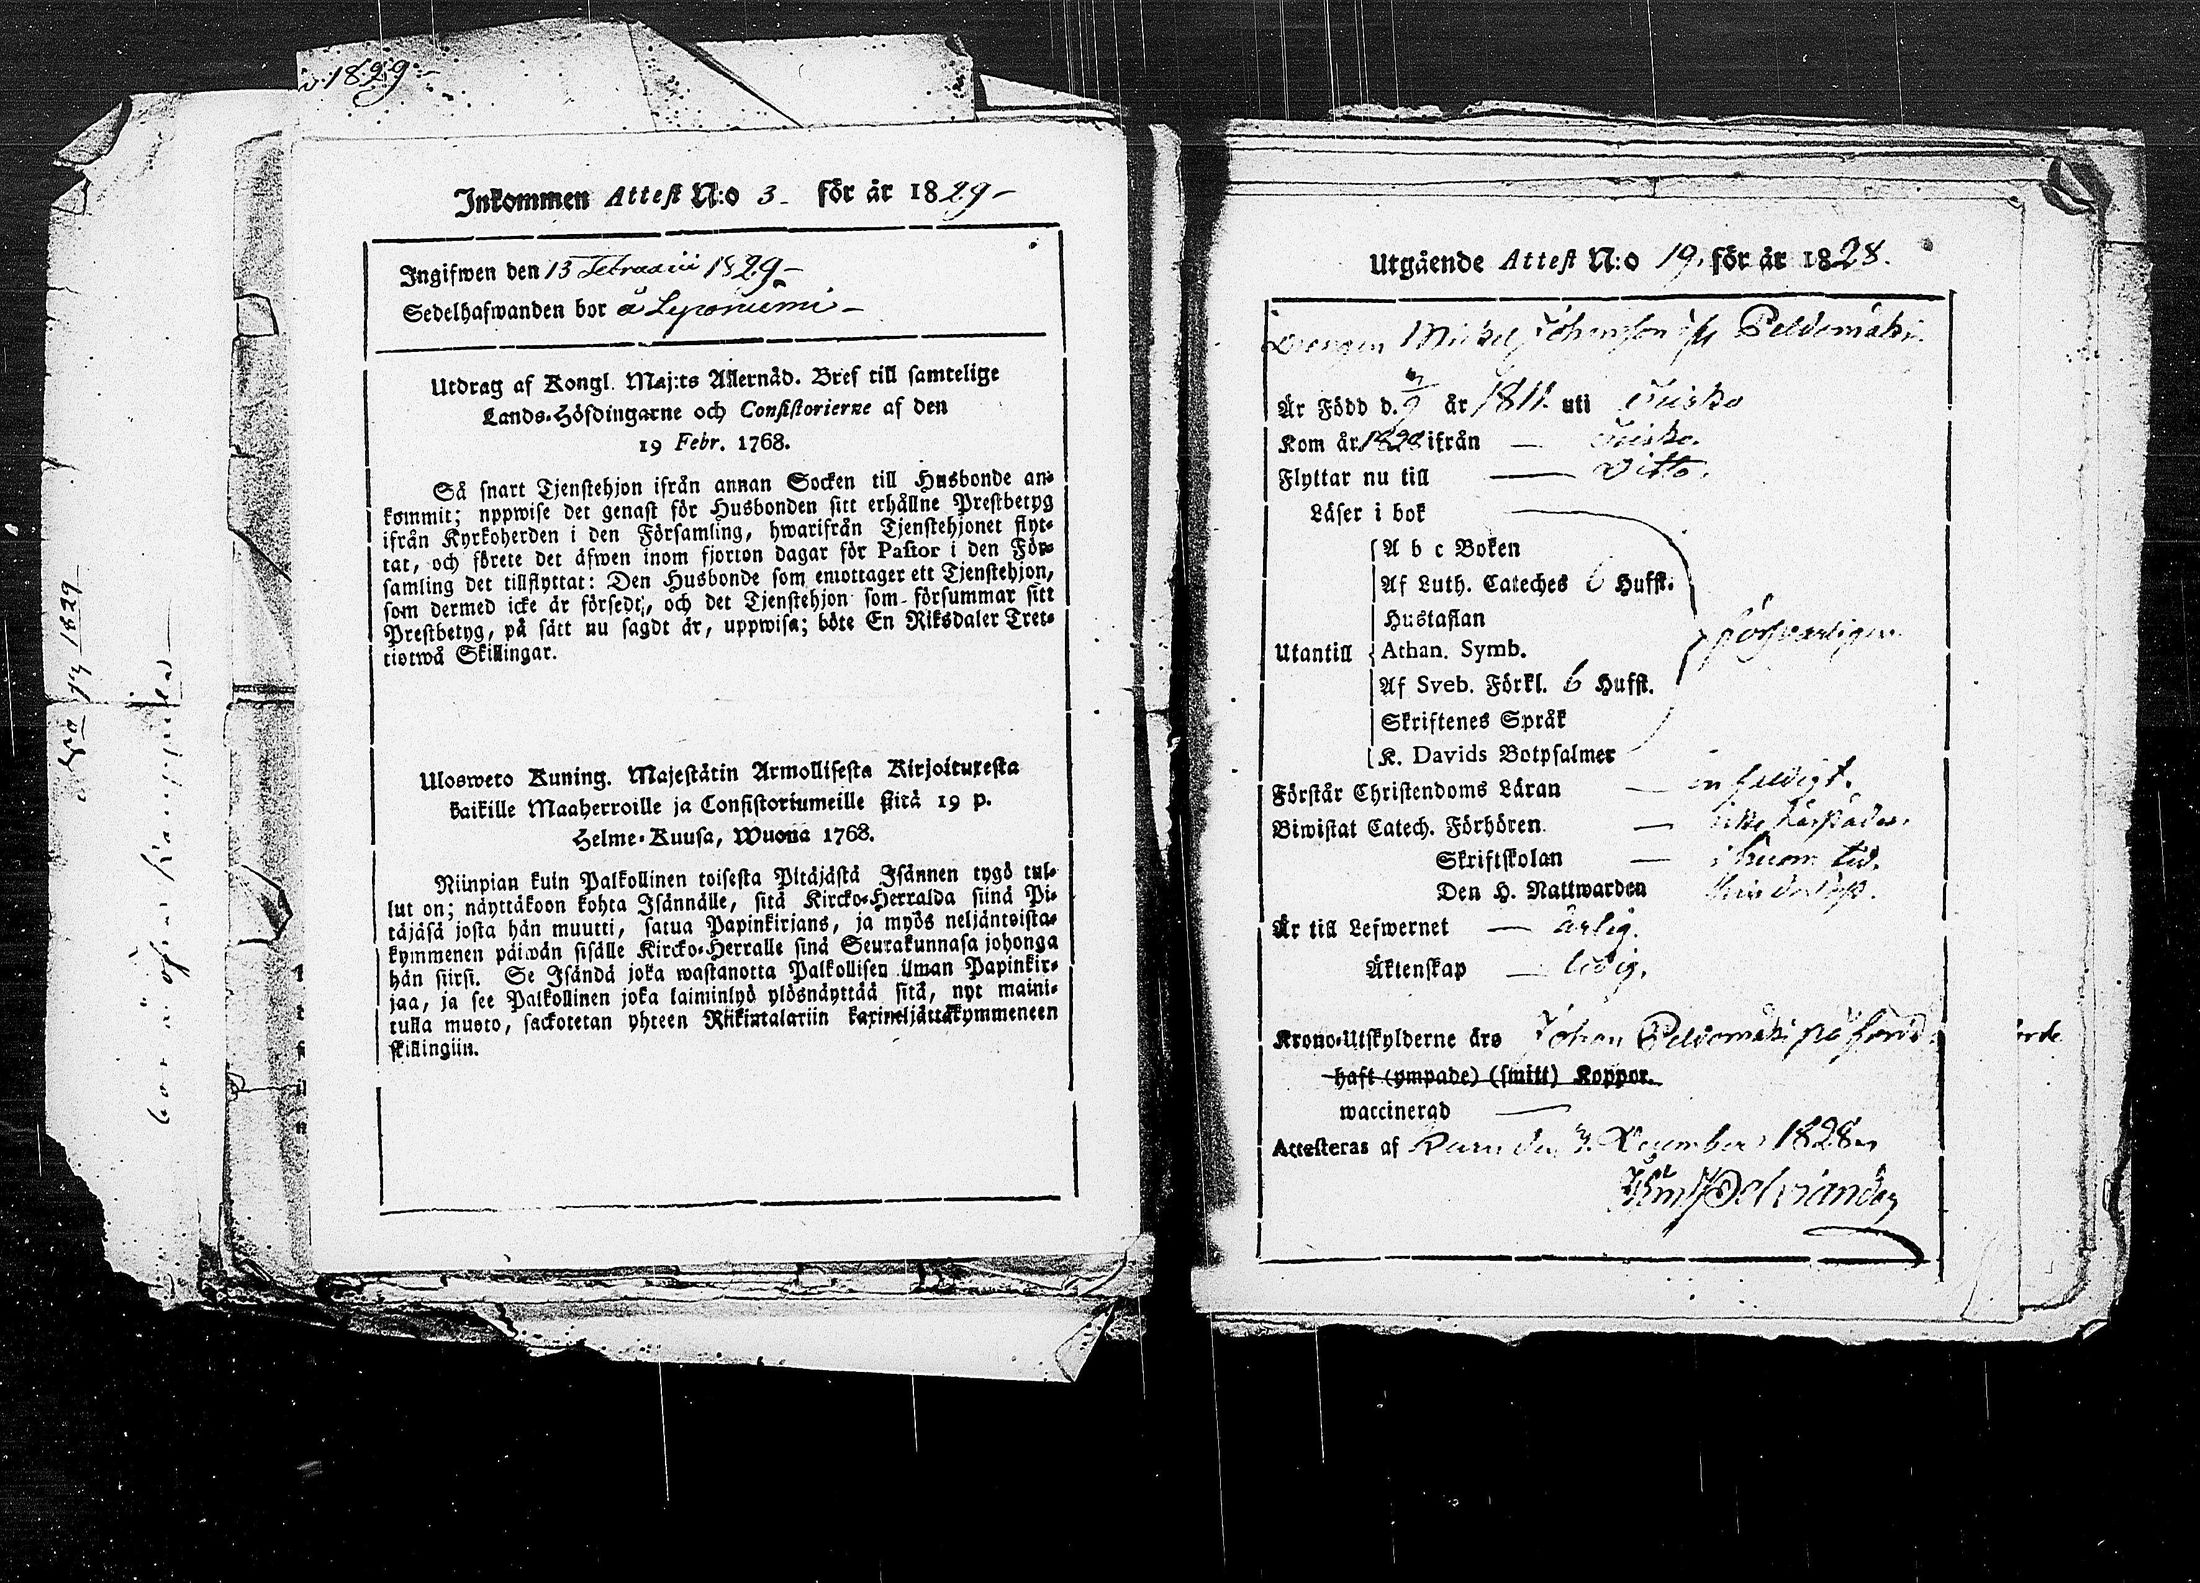 1829
Inkommen Attest N:o 3 för år 1829
Ingifwen den 13 Februarii 1829
Sedelhafwanden bor å Leponiemi
Utdrag af Kongl. Maj:ts Allernåd. Bref till samtelige
Lands-Höfdingarne och Consistorierne af den
19 Febr. 1768.
Så snart Tjenstehjon ifrån annan Socken till Husbonde an-
kommit; uppwise det genast för Husbonden sitt erhållne Prestbetyg
ifrån Kyrkoherden i den Församling, hwarifrån Tjenstehjonet flyt-
tat, och förete det äfwen inom fjorton dagar för Pastor i den För-
samling det tillflyttat: Den Husbonde som emottager ett Tjenstehjon,
som dermed icke är försedt, och det Tjenstehjon som försummar sitt
Prestbetyg, på sätt nu sagdt är, uppwisa; böte En Riksdaler Tret-
tiotwå Skillingar.
Ulosweto Kuning. Majestätin Armollisesta Kirjoituxesta
kaikille Maaherroille ja Consistoriumeille siitä 19 p.
Helme-Kuusa, Wuona 1768.
Niinpian kuin Palkollinen toisesta Pitäjästä Isännen tygö tul-
lut on; näyttäkoon kohta Isännälle, sitä Kircko-Herralda siinä Pi-
täjäsä josta hän muutti, saatua Papinkirjans, ja myös neljäntoista-
kymmenen päiwän sisälle Kircko-Herralle sinä Seurakunnasa johonga
hän siirsi. Se Isändä joka wastanotta Palkollisen ilman Papinkir-
jaa, ja see Palkollinen joka laiminlyö ylösnäyttää sitä, nyt maini-
tulla muoto, sackotetan yhteen Riikintalariin kaxineljättäkymmeneen
skillingiin.
Utgående Attest N:o 19. för år 1828.
Drengen Mickel Johansson ifr Peldomäki
Är Född d. 9 år 1811 uti Kisko
Kom år 1828 ifrån — Kisko.
Flyttar nu till — Ditto.
Läser i bok
A b c Boken
Af Luth. Cateches 6 Hufst.
Hustaflan
Utantill Athan. Symb. försvarligen
Af Sveb. Förkl. 6 Hufst.
Skriftenes Språk
K. Davids Botpsalmer
Förstår Christendoms Läran — enfeldigt.
Biwistat Catech. Förhören —
Skriftskolan — tid.
Den H. Nattwarden
Är till Lefwernet — ärlig.
Äktenskap — ledig.
Krono-Utskylderne äro Johan Peldomäki på förd
haft (ympade) (smitt) Koppor.
waccinerad —
Attesteras af den 3. December 1828